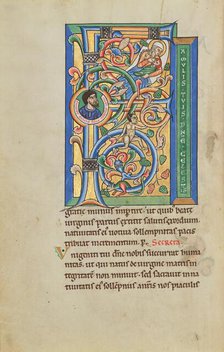 AMVLIS TVIS DNE CELEST
gratie munus inptire. ut quib' beate
virginis partus extitit salutis exordium.
nativitatis ei' votiva sollempnitas pacis
tribuat incrementum. P. Secreta.
Unigeniti tui dne nobis succurrat huma
nitas. ut qui natus de virgine matris in
tegritate non minuit. sed sacravit. in na
tivitatis ei' sollepniis a nris nos piaculis